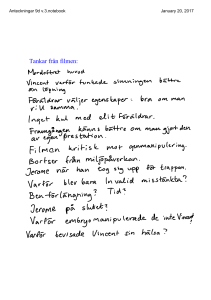 Anteckningar 9d v 3.notebook
January 20, 2017
Tankar från filmen:
Mordoffret huvud
Vincent varför funkade simningen bättre
än löpning
Föräldrar väljer egenskaper: bra om man
vill samma.
Inget bok med elitföräldrar.
Framgången känns bättre om man gjort den
av egen prestation.
Filmen kritisk mot genmanipulering.
Bortser från miljöpåverkan.
Jerome när han tog sig upp för trappan.
Varför blev bara Invalid misstänkta?
Ben-förlängning? Tid?
Jerome på slutet?
Varför embryomanipulerade de inte Vincent
Varför bevisade Vincent sin hälsa?